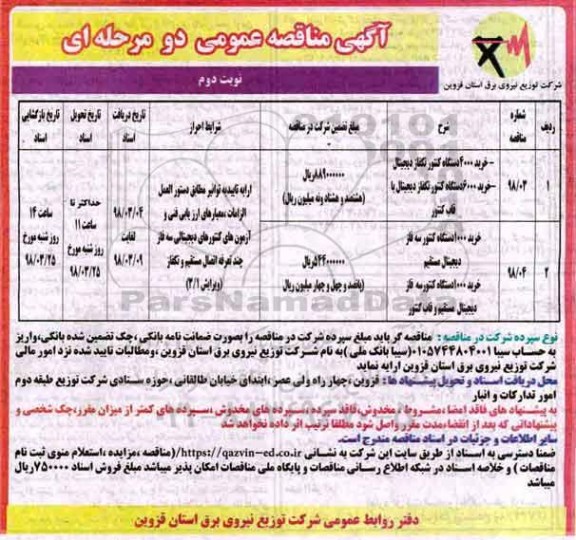 آگهی مناقصه عمومی دو مرحله ای
شرکت توزیع نیروی برق استان قزوین
نوبت دوم
ردیف
شماره مناقصه
شرح
مبلغ تضمین شرکت در مناقصه
شرایط احراز
تاریخ دریافت اسناد
تاریخ تحویل اسناد
تاریخ بازگشایی اسناد
۱
۹۸/۰۳
- خرید ۴۰۰۰ دستگاه کنتور تکفاز دیجیتال
- خرید ۶۰۰۰ دستگاه کنتور تکفاز دیجیتال با
قاب کنتور
۸۸۹۰۰۰۰۰۰ ریال
(هشتصد و هشتاد و نه میلیون ریال)
۲
۹۸/۰۴
خرید ۱۰۰۰ دستگاه کنتور سه فاز
دیجیتال مستقیم
خرید ۱۰۰۰ دستگاه کنتور سه فاز
دیجیتال مستقیم و قاب کنتور
۵۴۴۰۰۰۰۰۰ ریال
(پانصد و چهل و چهار میلیون ریال)
ارایه تاییدیه توانیر مطابق دستور العمل
الزامات ،معیارهای ارزیابی فنی و
آزمون های کنتورهای دیجیتالی سه فاز
چند تعرفه اتصال مستقیم و تکفاز
(ویرایش ۳/۱)
۹۸/۰۳/۰۴
لغایت
۹۸/۰۳/۰۹
حداکثر تا
ساعت ۱۱
روز شنبه مورخ
۹۸/۰۳/۲۵
ساعت ۱۴
روز شنبه مورخ
۹۸/۰۳/۲۵
نوع سپرده شرکت در مناقصه : مناقصه گر باید مبلغ سپرده شرکت در مناقصه را بصورت ضمانت نامه بانکی ،چک تضمین شده بانکی،واریز
به حساب سیبا ۰۱۰۵۷۴۴۸۰۴۰۰۱ (سیبا بانک ملی )به نام شرکت توزیع نیروی برق استان قزوین ،ومطالبات تایید شده نزد امور مالی
شرکت توزیع نیروی برق استان قزوین ارایه نماید
محل دریافت اسناد و تحویل پیشنهاد ها : قزوین ،چهار راه ولی عصر،ابتدای خیابان طالقانی ،حوزه ستادی شرکت توزیع طبقه دوم
امور تدارکات و انبار
به پیشنهاد های فاقد امضا،مشروط،مخدوش،فاقد سپرده،سپرده های مخدوش ،سپرده های کمتر از میزان مقرر،چک شخصی و
پیشنهاداتی که بعد از انقضاءمدت مقرر واصل شود مطلقا ترتیب اثر داده نخواهد شد
سایر اطلاعات و جزئیات در اسناد مناقصه مندرج است.
ضمنا دسترسی به اسناد از طریق سایت این شرکت به نشانی https://qazvin-ed.co.ir/(مناقصه ،مزایده ،استعلام منوی ثبت نام
مناقصات ) و خلاصه اسناد در شبکه اطلاع رسانی مناقصات و پایگاه ملی مناقصات امکان پذیر میباشد مبلغ فروش اسناد ۷۵۰۰۰۰ ریال
میباشد
دفتر روابط عمومی شرکت توزیع نیروی برق استان قزوین
ParsNamadData